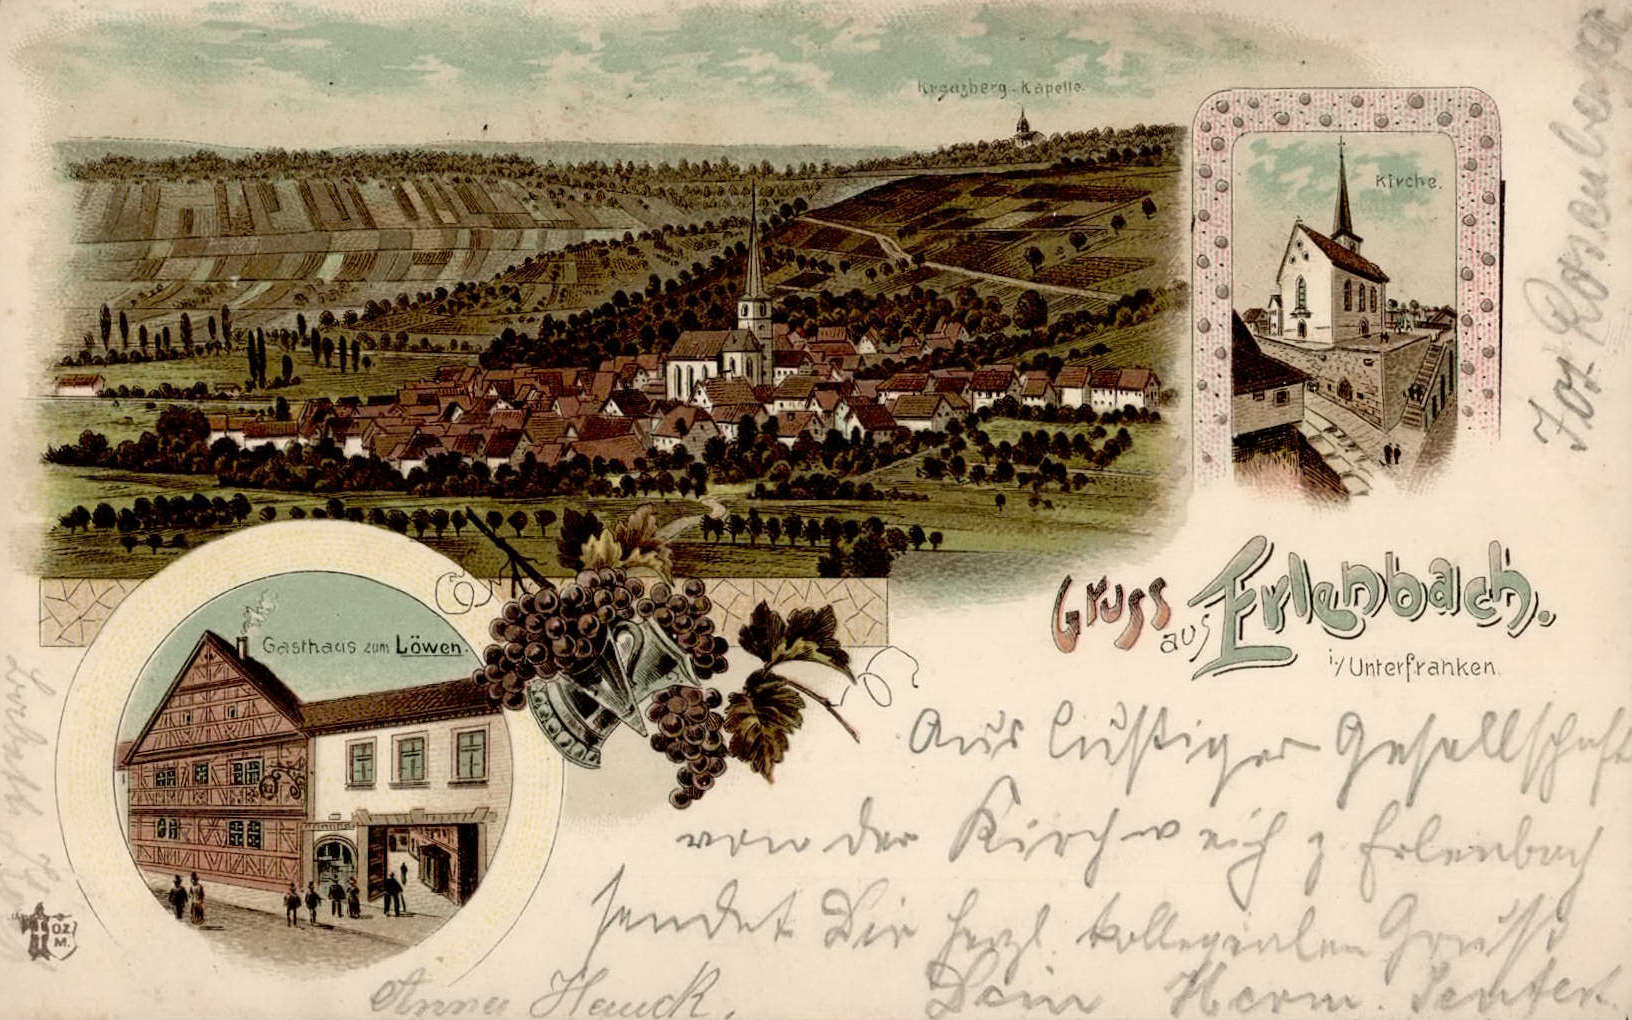 Kreuzberg-Kapelle.
Kirche.
Gasthaus zum Löwen.
Gruss
aus Erlenbach.
i./Unterfranken.
Aus lustiger Gesellschaft
von der Kirchweih z Erlenbach
sendet Dir herzl. kollegialen Gruß
Dein Herm.
Anna Hauck.
Jos. Rosenberger
O.Z.
M.